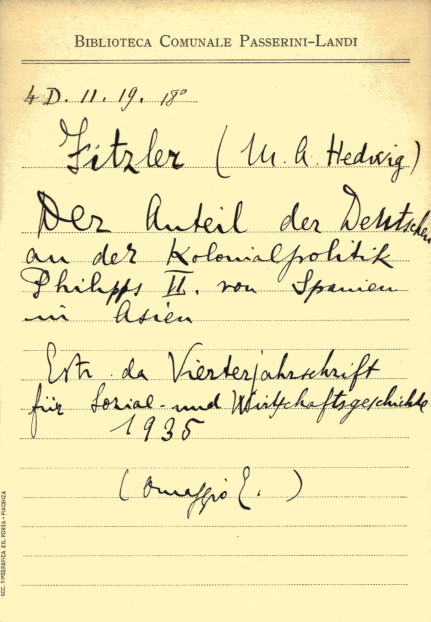 BIBLIOTECA COMUNALE PASSERINI-LANDI
4 D. 11. 19. 18°
Fitzler (M. A. Hedwig)
Der Anteil der Deutschen
an der Kolonialpolitik
Philipps II. von Spanien
in Asien
Estr. da Vierterjahrschrift
für Sozial- und Wirtschaftsgeschichte
1935
(Omaggio E. )
SOC. TIPOGRAFICA ED. PORTA - PIACENZA